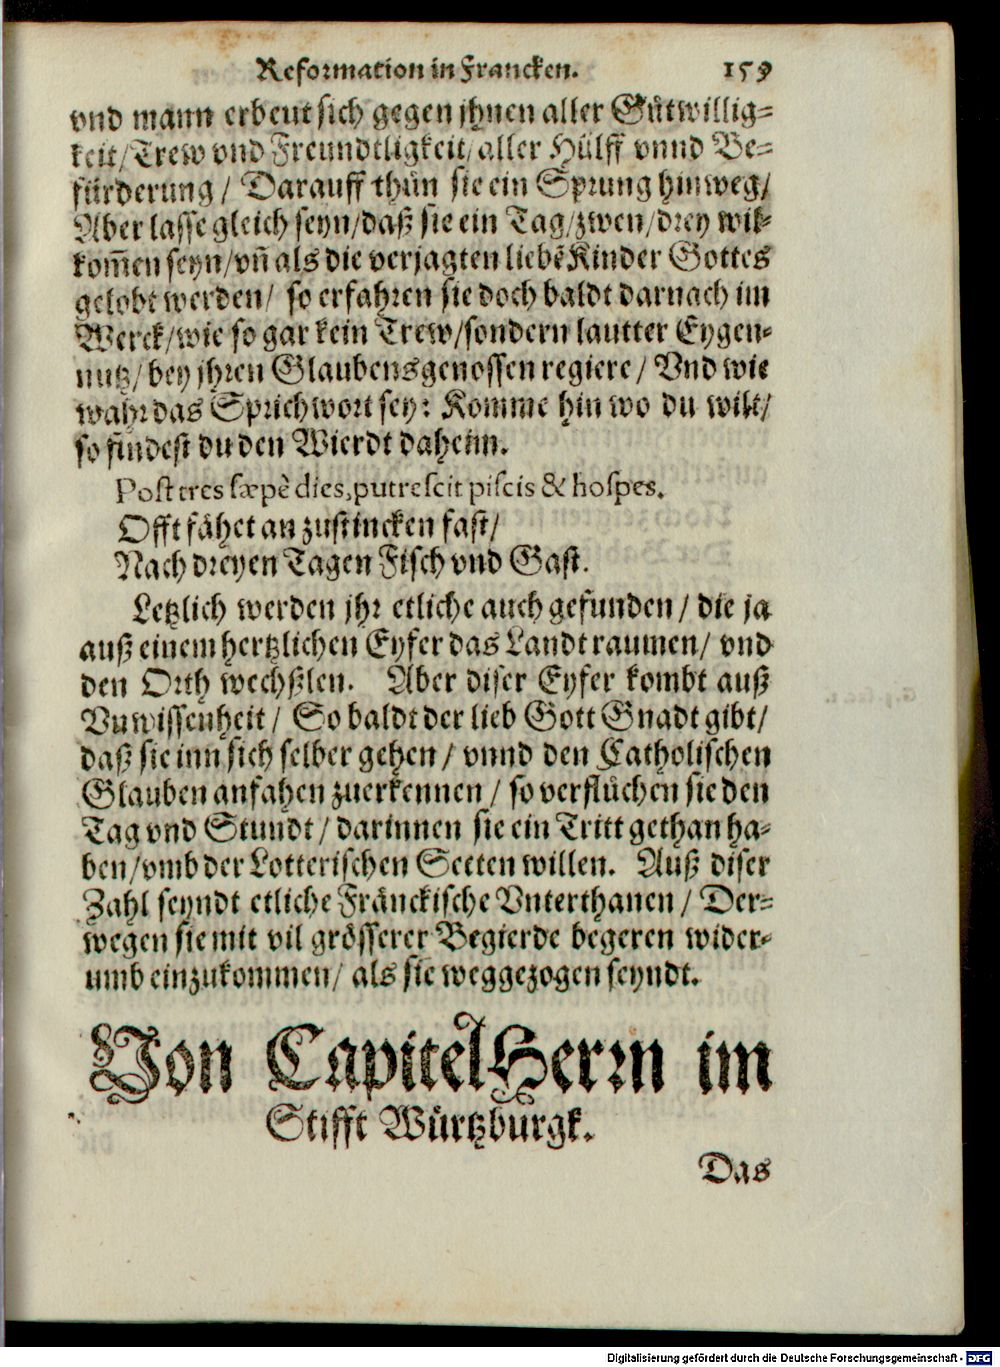 Reformation in Francken. 159
vnd mann erbeut sich gegen jhnen aller Gůtwillig-
keit/Trew vnd Freundtligkeit/aller Hülff vnnd Be-
fürderung/ Darauff thůn sie ein Sprung hinweg/
Aber lasse gleich seyn/daß sie ein Tag/zwen/drey wil-
kom̃en seyn/vñ als die verjagten liebẽ Kinder Gottes
gelobt werden/ so erfahren sie doch baldt darnach im
Werck/wie so gar kein Trew/sondern lautter Eygen-
nutz/bey jhren Glaubensgenossen regiere/ Vnd wie
wahr das Sprichwort sey: Komme hin wo du wilt/
so findest du den Wierdt daheim.
Post tres sæpè dies, putrescit piscis & hospes.
Offt fåhet an zustincken fast/
Nach dreyen Tagen Fisch vnd Gast.
Letzlich werden jhr etliche auch gefunden/ die ja
auß einem hertzlichen Eyfer das Landt raumen/ vnd
den Orth wechßlen. Aber diser Eyfer kombt auß
Vnwissenheit/ So baldt der lieb Gott Gnadt gibt/
daß sie inn sich selber gehen/ vnnd den Catholischen
Glauben anfahen zuerkennen/ so verflůchen sie den
Tag vnd Stundt/ darinnen sie ein Tritt gethan ha-
ben/vmb der Lotterischen Secten willen. Auß diser
Zahl seyndt etliche Fränckische Vnterthanen/ Der-
wegen sie mit vil grösserer Begierde begeren wider-
umb einzukommen/ als sie weggezogen seyndt.
Von CapitelHerrn im
Stifft Würtzburgk.
Das
Digitalisierung gefördert durch die Deutsche Forschungsgemeinschaft - DFG